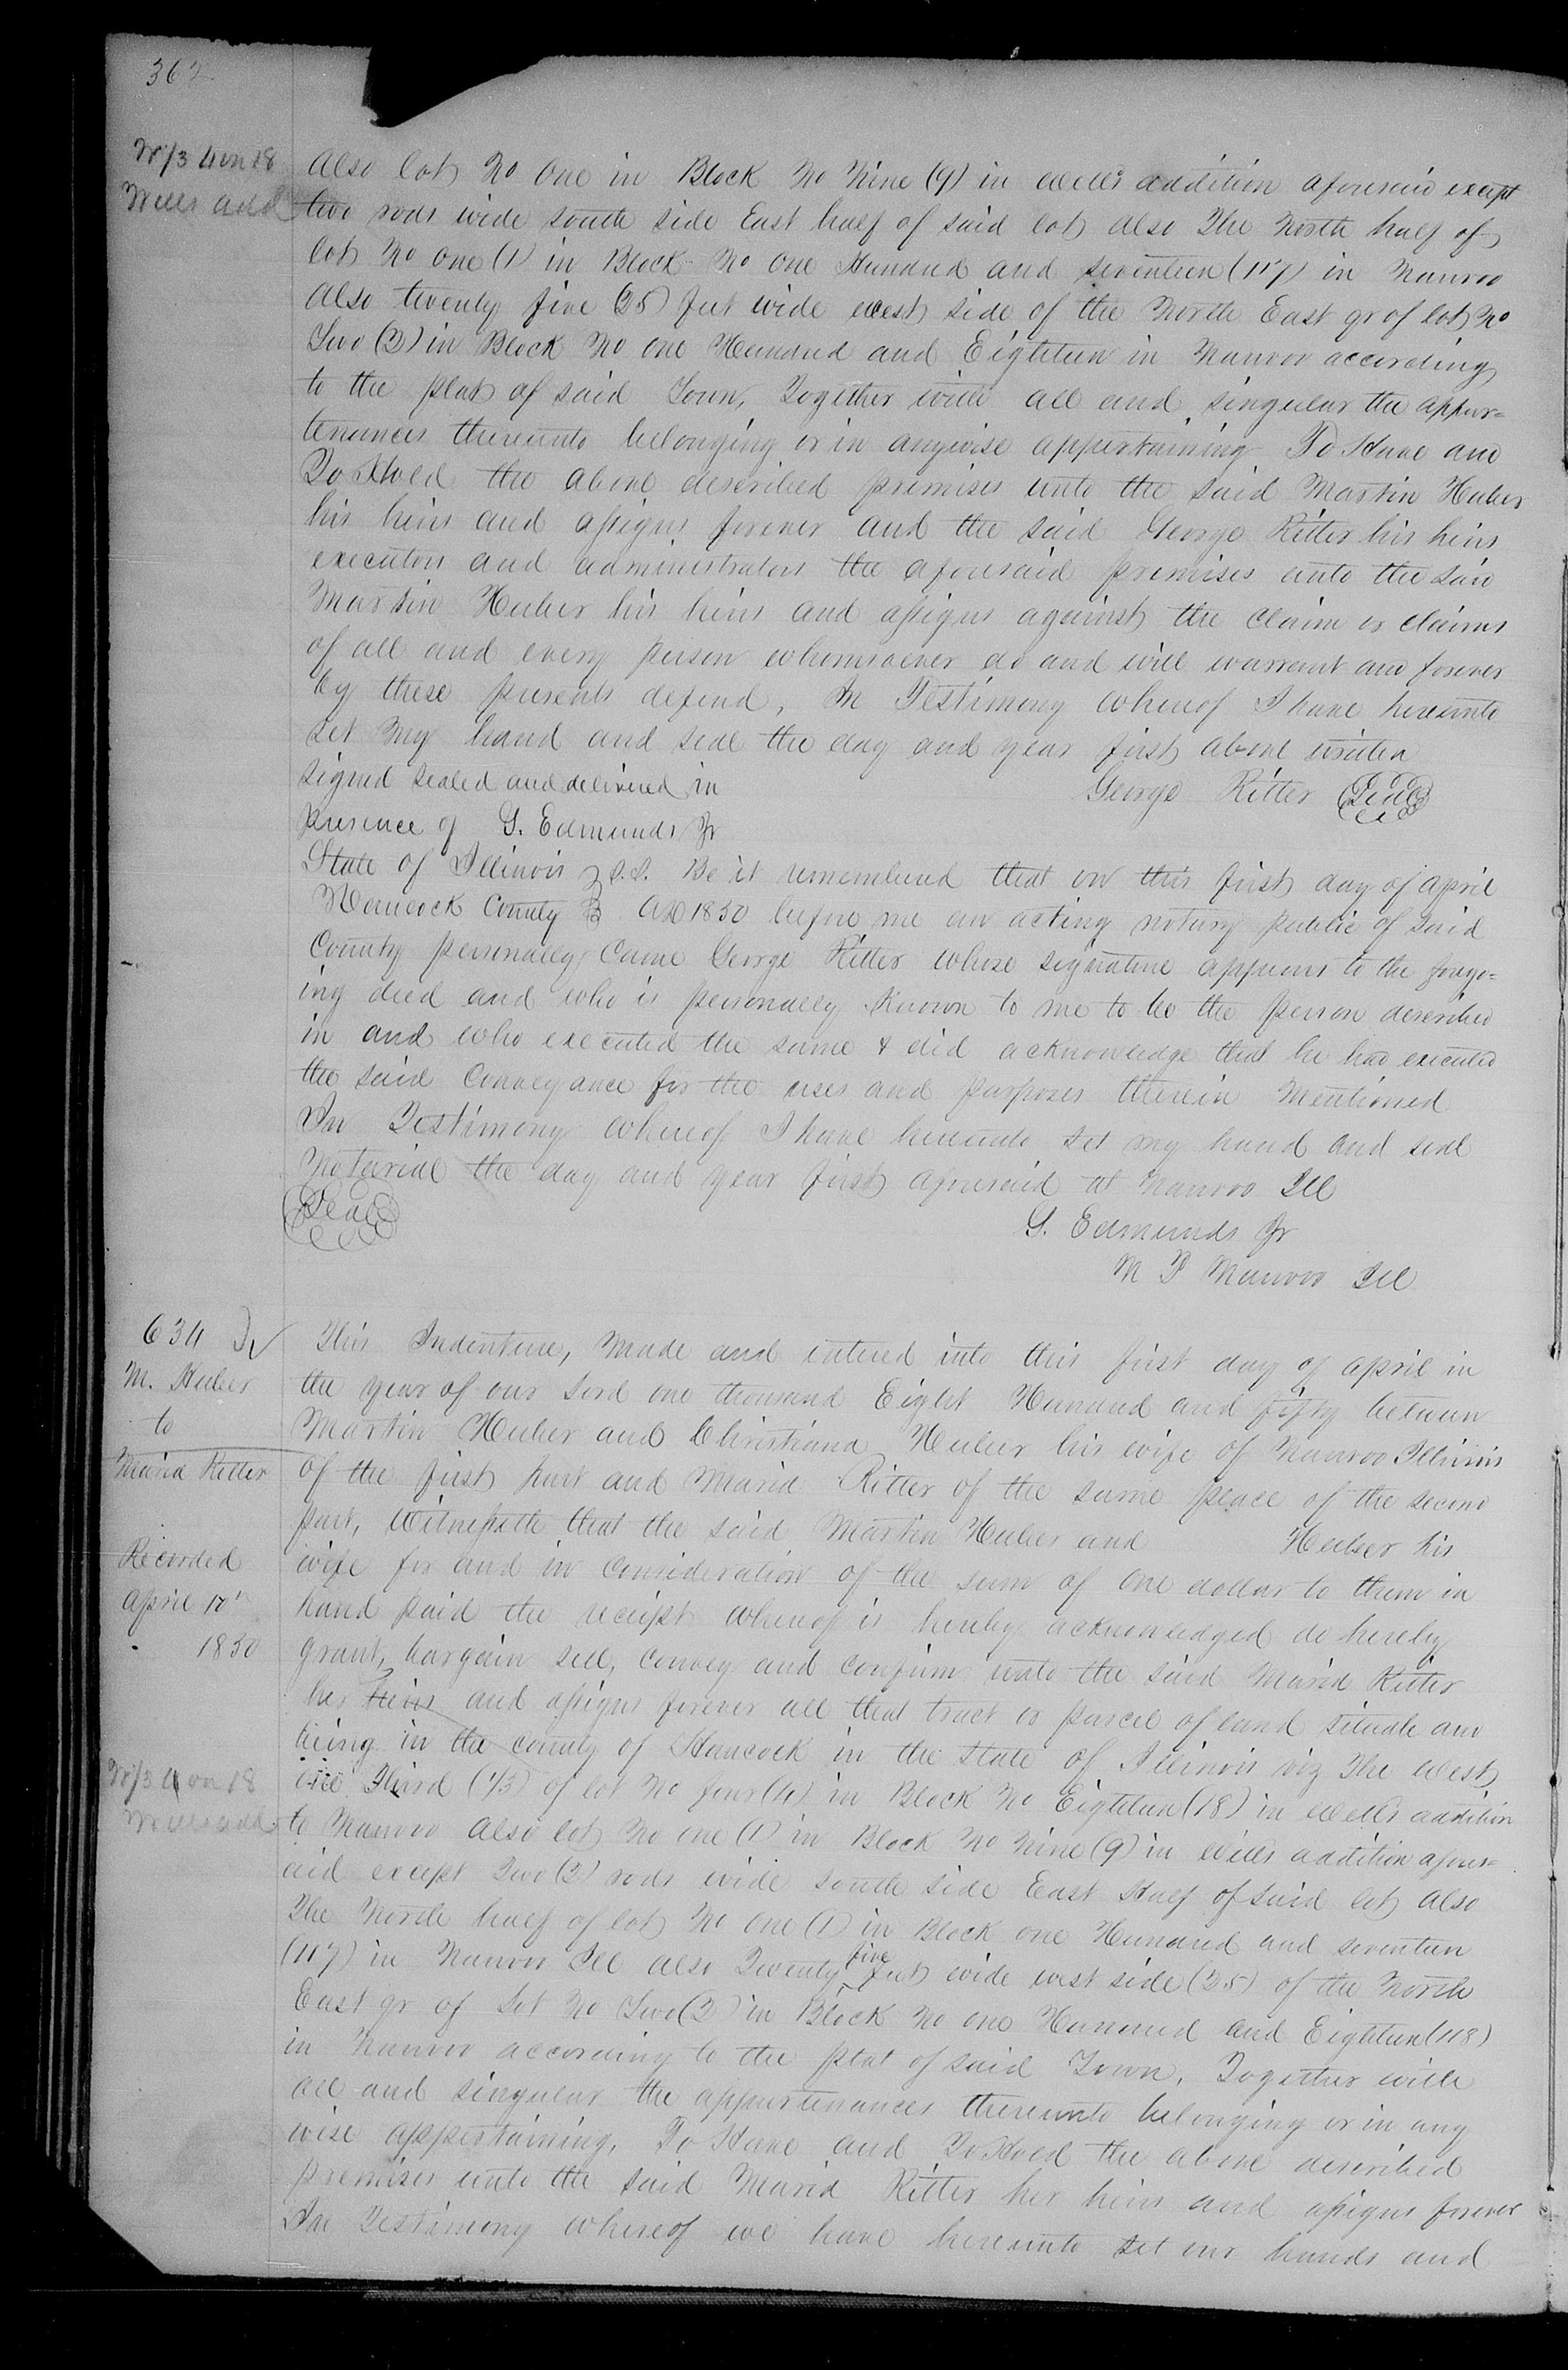 362
W/3 4 on 18
Wells add
Also lot No One in Block No Nine (9) in Wells addition aforesaid except
two rods wide south side East half of said lot also The North half of
lot No One (1) in Block No One Hundred and seventeen (117) in Nauvoo
Also twenty five (25) feet wide west side of the North East qr of lot No
Two (2) in Block No One Hundred and Eighteen in Nauvoo according
to the plat of said Town, Together with all and singular the appur=
tenances thereunto belonging or in anywise appertaining To Have and
To Hold the above described premises unto the said Martin Huber
his heirs and assigns forever and the said George Ritter his heirs
executors and administrators the aforesaid premises unto the said
Martin Huber his heirs and assigns against the claim or claims
of all and every person whomsoever do and will warrant and forever
by these presents defend, In Testimony whereof I have hereunto
set my hand and seal the day and year first above written
signed sealed and delivered in
George Ritter (Seal)
presence of G. Edmunds Jr
State of Illinois } S.S. Be it remembered that on this first day of April
Hancock County } AD 1850 before me an acting notary public of said
County personally came George Ritter whose signature appears to the forego=
ing deed and who is personally known to me to be the person described
in and who executed the same & did acknowledge that he had executed
the said Conveyance for the uses and purposes therein Mentioned
In Testimony Whereof I have hereunto set my hand and seal
Notarial the day and year first aforesaid at Nauvoo Ill
(Seal)
G. Edmunds Jr
N P Nauvoo Ill
634
M. Huber
to
Maria Ritter
Recorded
April
1850
W/3 4 on 18
Wells add
This Indenture, Made and entered into this first day of April in
the year of our Lord one thousand Eight Hundred and fifty between
Martin Huber and Christiana Huber his wife of Nauvoo Illinois
of the first part and Maria Ritter of the same place of the second
part, Witnesseth that the said Martin Huber and Huber his
wife for and in consideration of the sum of One dollar to them in
hand paid the receipt whereof is hereby acknowledged do hereby
grant, bargain sell, convey and confirm unto the said Maria Ritter
her heirs and assigns forever all that tract or parcel of land situate and
being in the county of Hancock in the state of Illinois viz The West
one Third (1/3) of lot No four (4) in Block No Eighteen (18) in Wells addition
to Nauvoo Also lot No one (1) in Block No Nine (9) in Wells addition afores=
aid except Two (2) rods wide south side East Half of said lot also
The North half of lot No One (1) in Block one Hundred and seventeen
(117) in Nauvoo Ill also Twenty five feet wide west side (25) of the North
East qr of Lot No Two (2) in Block No one Hundred and Eighteen (118)
in Nauvoo according to the plat of said Town, Together with
all and singular the appurtenances thereunto belonging or in any
wise appertaining, To Have and To Hold the above described
premises unto the said Maria Ritter her heirs and assigns forever
In Testimony whereof we have hereunto set our hands and